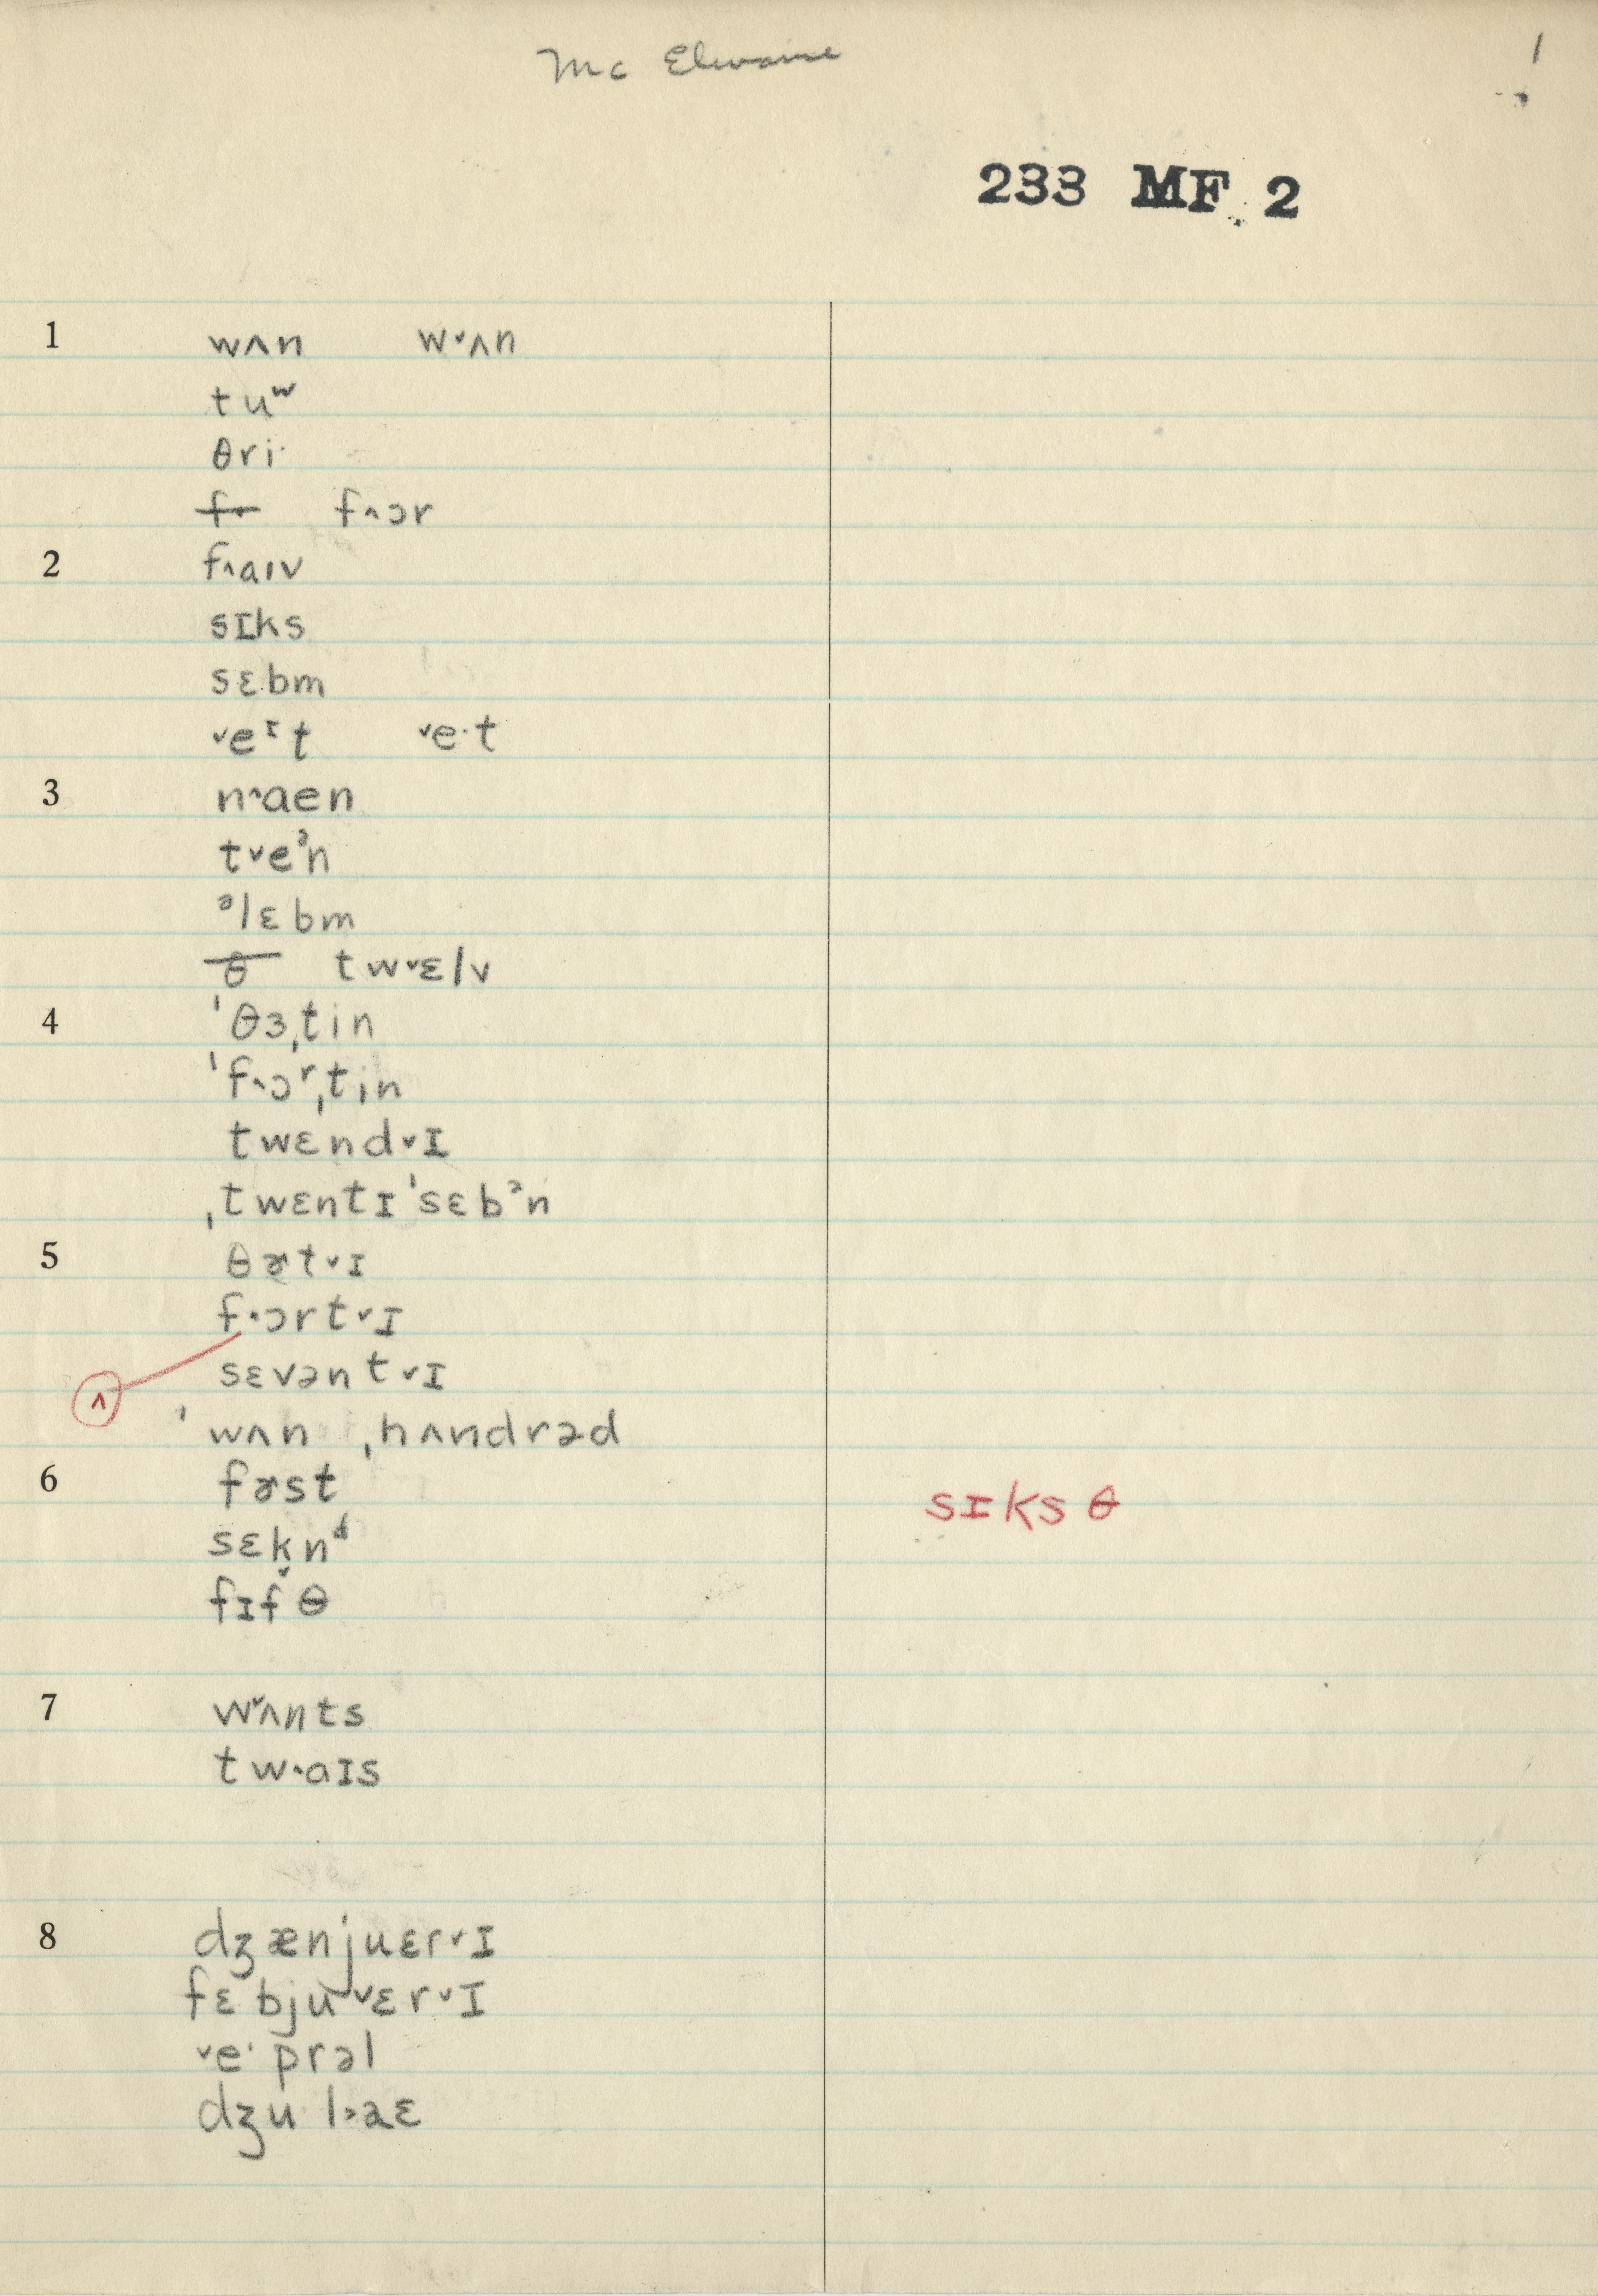 Mc Elwaine 1
233 MF 2
1 wʌn w˅ʌn
tuʷ
θri·
f˄ɔr
2 f˄aɪv
sɪks
sɛbm
˅eᶦt ˅e·t
3 n˄aen
t˅eᵊn
ᵊlɛbm
θ tw˅ɛlv
4 ˈθɜˌtin
ˈf˄ɔʳˌtin
twɛnd˅ɪ
ˌtwɛntɪˈsɛbᵊn
5 θɚt˅ɪ
f˄ɔrt˅ɪ
sɛvənt˅ɪ
ʌ
ˈwʌn ˌhʌndrəd
6 fɚst sɪksθ
sɛknᵈ
fɪfθ
7 w˅ʌnts
tw˄aɪs
8 dʒænjuɛr˅ɪ
fɛbju˅ɛr˅ɪ
˅e·prəl
dʒul˃aɛ